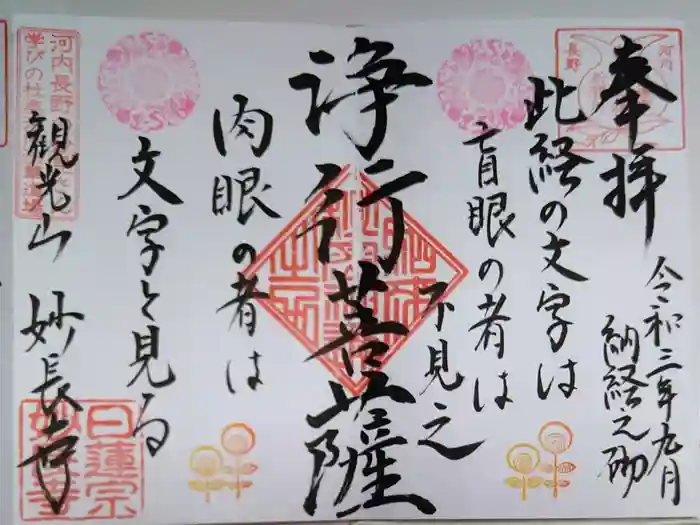 奉拝
令和三年九月
納経之砌
河内
長野
此経の文字は
盲眼の者は
不見之
浄行菩薩
肉眼の者は
文字と見る
河内長野
学びの杜
観光山 妙長寺
日蓮宗
妙長寺